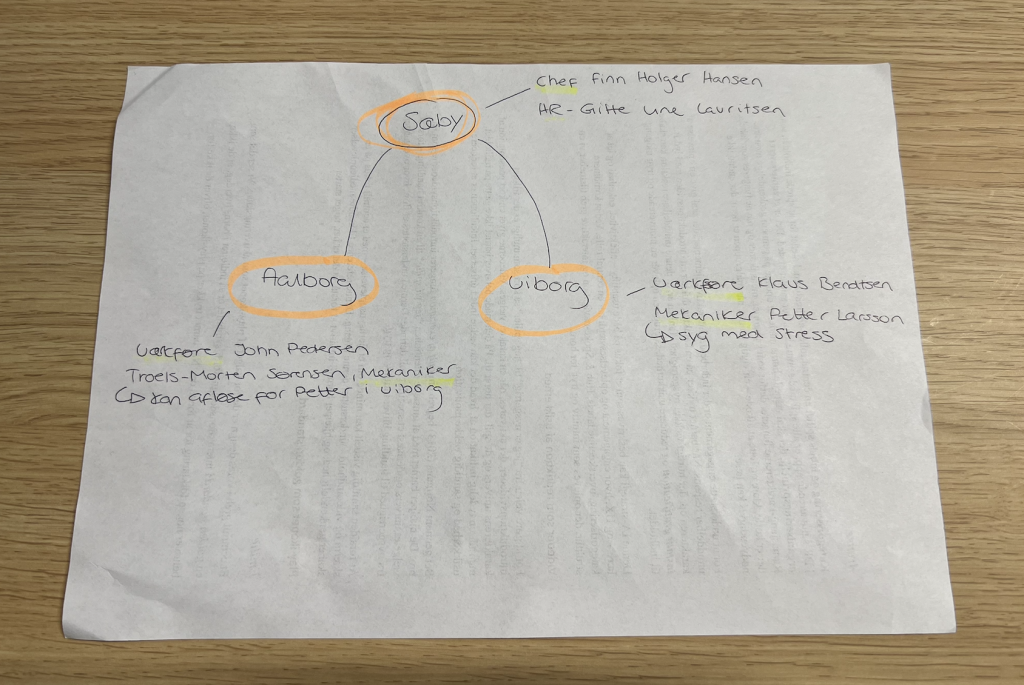 Chef Finn Holger Hansen
HR - Gitte Line Lauritsen
Sæby
Aalborg
Viborg
Værkføre Klaus Bendtsen
Mekaniker Petter Larsson
↳ syg med stress
Værkføre John Pedersen
Troels-Morten Sørensen, Mekaniker
↳ kan afløse for Petter i Viborg